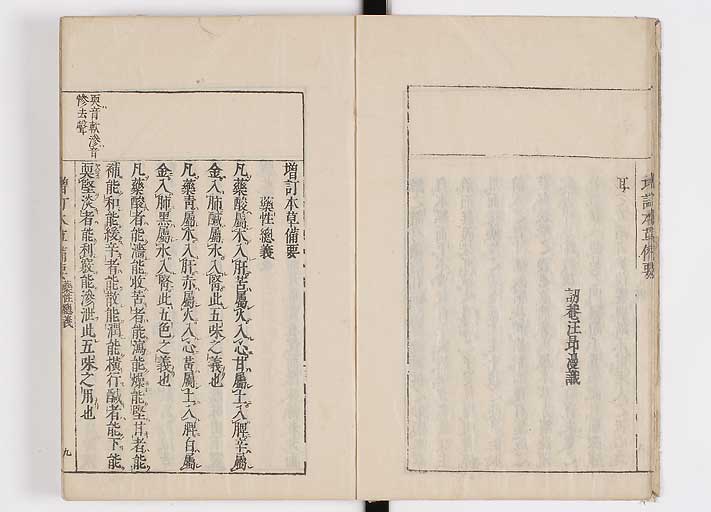 增訂本草備要
耳
訒菴汪昂漫識
增訂本草備要
藥性總義
凡藥酸屬木入肝苦屬火入心甘屬土入脾辛屬
金入肺鹹屬水入腎此五味之義也
凡藥青屬木入肝赤屬火入心黃屬土入脾白屬
金入肺黑屬水入腎此五色之義也
凡藥酸者能濇能收苦者能瀉能燥能堅甘者能
補能和能緩辛者能散能潤能橫行鹹者能下能
耎堅淡者能利竅能滲泄此五味之用也
耎音軟滲音
慘去聲
增訂本草備要 藥性總義 九